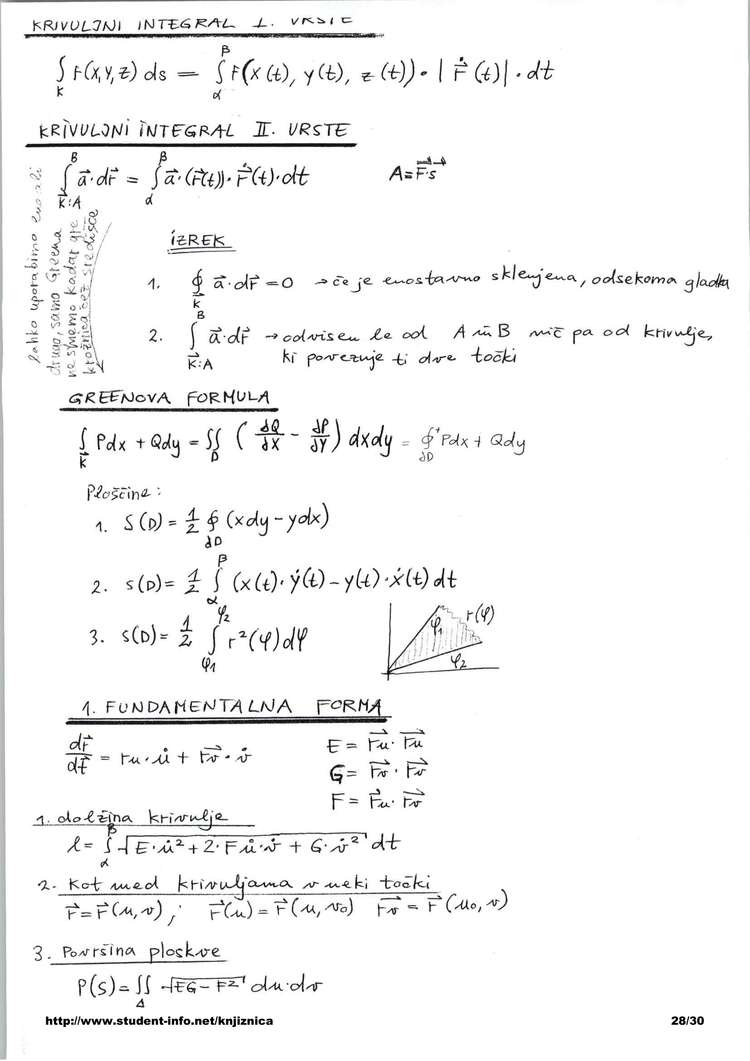 KRIVULJNI INTEGRAL I. VRSTE
∫_K F(x,y,z) ds = ∫_α^β F(x(t), y(t), z(t)) · |ṙ⃗(t)| · dt
KRIVULJNI INTEGRAL II. VRSTE
∫_{K⃗:A}^B a⃗·dr⃗ = ∫_α^β a⃗·(r⃗(t))·ṙ⃗(t)·dt A = F⃗·s⃗
lahko uporabimo
drugo, samo Greena
ne smemo kadar gre
krožnica čez središče
IZREK
1. ∮_K⃗ a⃗·dr⃗ = 0 → če je enostavno sklenjena, odsekoma gladka
2. ∫_{K⃗:A}^B a⃗·dr⃗ → odvisen le od A in B nič pa od krivulje,
ki povezuje ti dve točki
GREENOVA FORMULA
∫_K⃗ Pdx + Qdy = ∬_D (∂Q/∂x - ∂P/∂y) dxdy = ∮⁺_∂D Pdx + Qdy
Ploščine:
1. S(D) = 1/2 ∮_∂D (xdy - ydx)
2. S(D) = 1/2 ∫_α^β (x(t)·ẏ(t) - y(t)·ẋ(t) dt
3. S(D) = 1/2 ∫_φ1^φ2 r²(φ)dφ φ1 r(φ) φ2
1. FUNDAMENTALNA FORMA
dr⃗/dt = ru·u̇ + r⃗v·v̇ E = r⃗u·r⃗u
G = r⃗v·r⃗v
F = r⃗u·r⃗v
1. dolžina krivulje
l = ∫_α^β √(E·u̇² + 2·Fu̇·v̇ + G·v̇²) dt
2. Kot med krivuljama v neki točki
r⃗ = r⃗(u,v), r⃗(u) = r⃗(u,v₀) r⃗v = r⃗(u₀,v)
3. Površina ploskve
P(S) = ∬_Δ √(EG - F²) du·dv
http://www.student-info.net/knjiznica 28/30